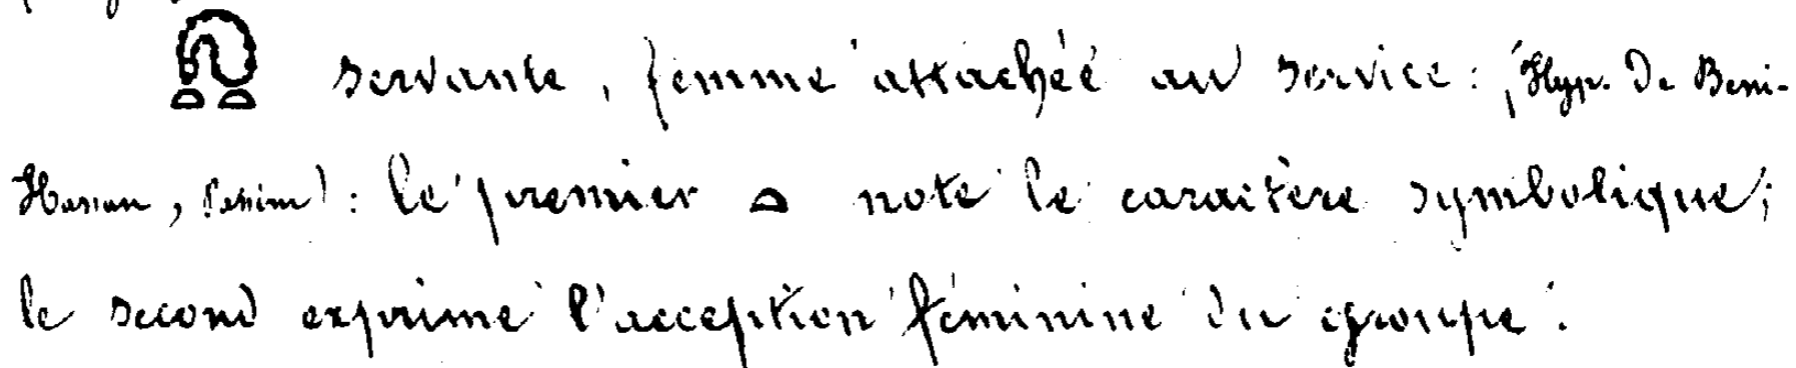 servante, femme attachée au service : (Hyp. de Beni-
Hassan, passim) : le premier 𓏏 note le caractère symbolique ;
le second exprime l'acception féminine du groupe.